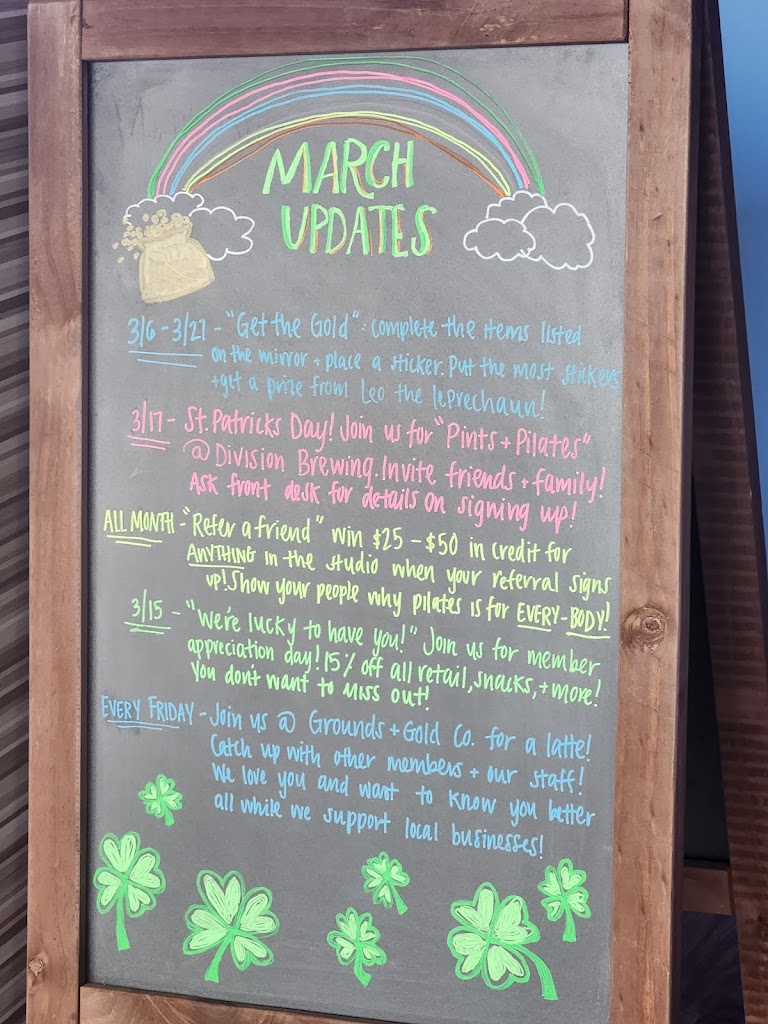 MARCH
UPDATES
3/6 - 3/27 - "Get the Gold": complete the items listed
on the mirror + place a sticker. Put the most stickers
+ get a prize from Leo the leprechaun!
3/17 - St. Patricks Day! Join us for "Pints + Pilates"
@ Division Brewing. Invite friends + family!
Ask front desk for details on signing up!
ALL MONTH - "Refer a friend" win $25 - $50 in credit for
ANYTHING in the studio when your referral signs
up! Show your people why pilates is for EVERY-BODY!
3/15 - "We're lucky to have you!" Join us for member
appreciation day! 15% off all retail, snacks, + more!
You don't want to miss out!
EVERY FRIDAY - Join us @ Grounds + Gold Co. for a latte!
Catch up with other members + our staff!
We love you and want to know you better
all while we support local businesses!